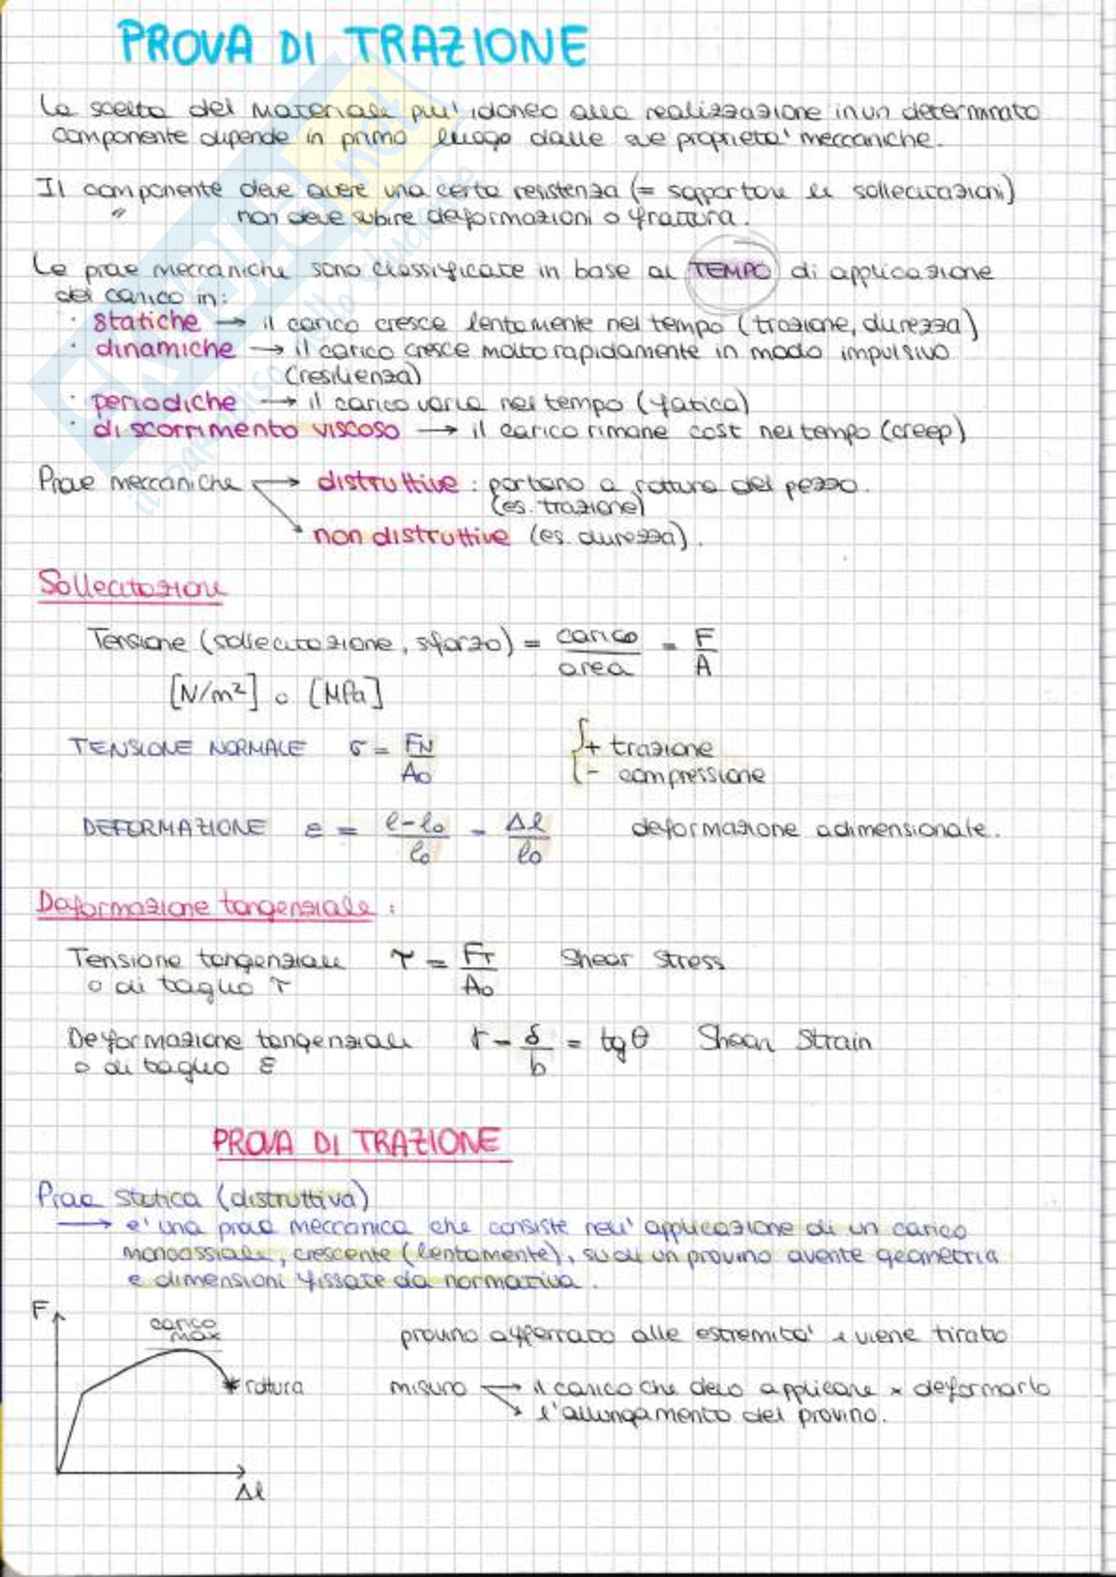 PROVA DI TRAZIONE
La scelta del materiale piu' idoneo alla realizzazione in un determinato
componente dipende in primo luogo dalle sue proprieta' meccaniche.
Il componente deve avere una certa resistenza (= sopportare le sollecitazioni)
" non deve subire deformazioni o frattura.
Le prove meccaniche sono classificate in base al TEMPO di applicazione
del carico in:
· statiche → il carico cresce lentamente nel tempo (trazione, durezza)
· dinamiche → il carico cresce molto rapidamente in modo impulsivo
(resilienza)
· periodiche → il carico varia nel tempo (fatica)
· di scorrimento viscoso → il carico rimane cost nel tempo (creep)
Prove meccaniche → distruttive : portano a rottura del pezzo.
(es. trazione)
non distruttive (es. durezza).
Sollecitazioni
Tensione (sollecitazione, sforzo) = carico/area = F/A
[N/m²] o [MPa]
TENSIONE NORMALE σ = FN/A0 { + trazione
- compressione
DEFORMAZIONE ε = l-l0/l0 = Δl/l0 deformazione adimensionale.
Deformazione tangenziale :
Tensione tangenziale τ = FT/A0 Shear Stress
o di taglio τ
Deformazione tangenziale γ = δ/b = tgθ Shear Strain
o di taglio ε
PROVA DI TRAZIONE
Prova statica (distruttiva)
→ e' una prova meccanica che consiste nell'applicazione di un carico
monoassiale, crescente (lentamente), su di un provino avente geometria
e dimensioni fissate da normativa.
F
carico
max
provino afferrato alle estremita' e viene tirato
rottura
misuro → il carico che devo applicare x deformarlo
→ l'allungamento del provino.
Δl